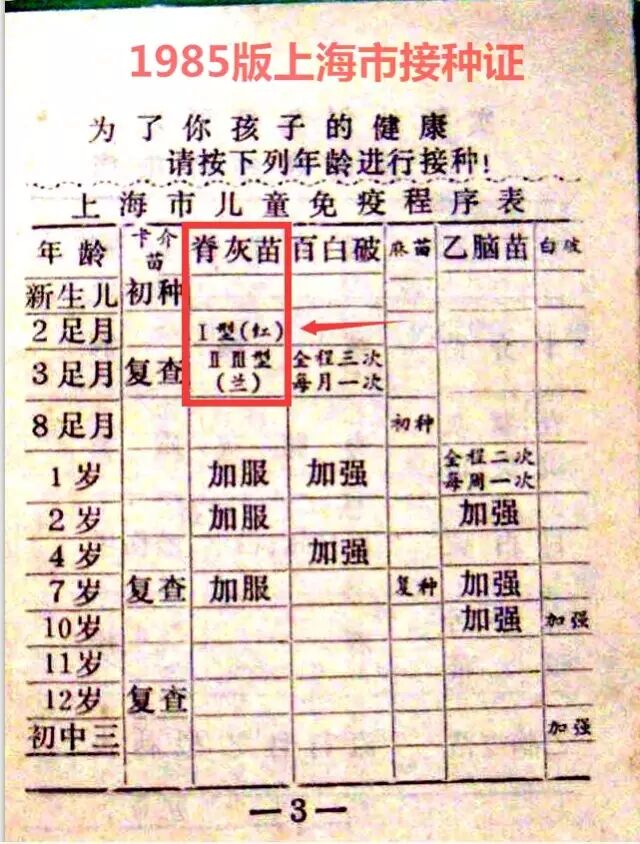 1985版上海市接种证
为了你孩子的健康
请按下列年龄进行接种!
上海市儿童免疫程序表
年龄 卡介苗 脊灰苗 百白破 麻苗 乙脑苗 白破
新生儿 初种
2足月 I型(红)
3足月 复查 II III型(兰) 全程三次每月一次
8足月 初种
1岁 加服 加强 全程二次每周一次
2岁 加服 加强
4岁 加强
7岁 复查 加服 复种 加强
10岁 加强 加强
11岁
12岁 复查
初中三 加强
—3—